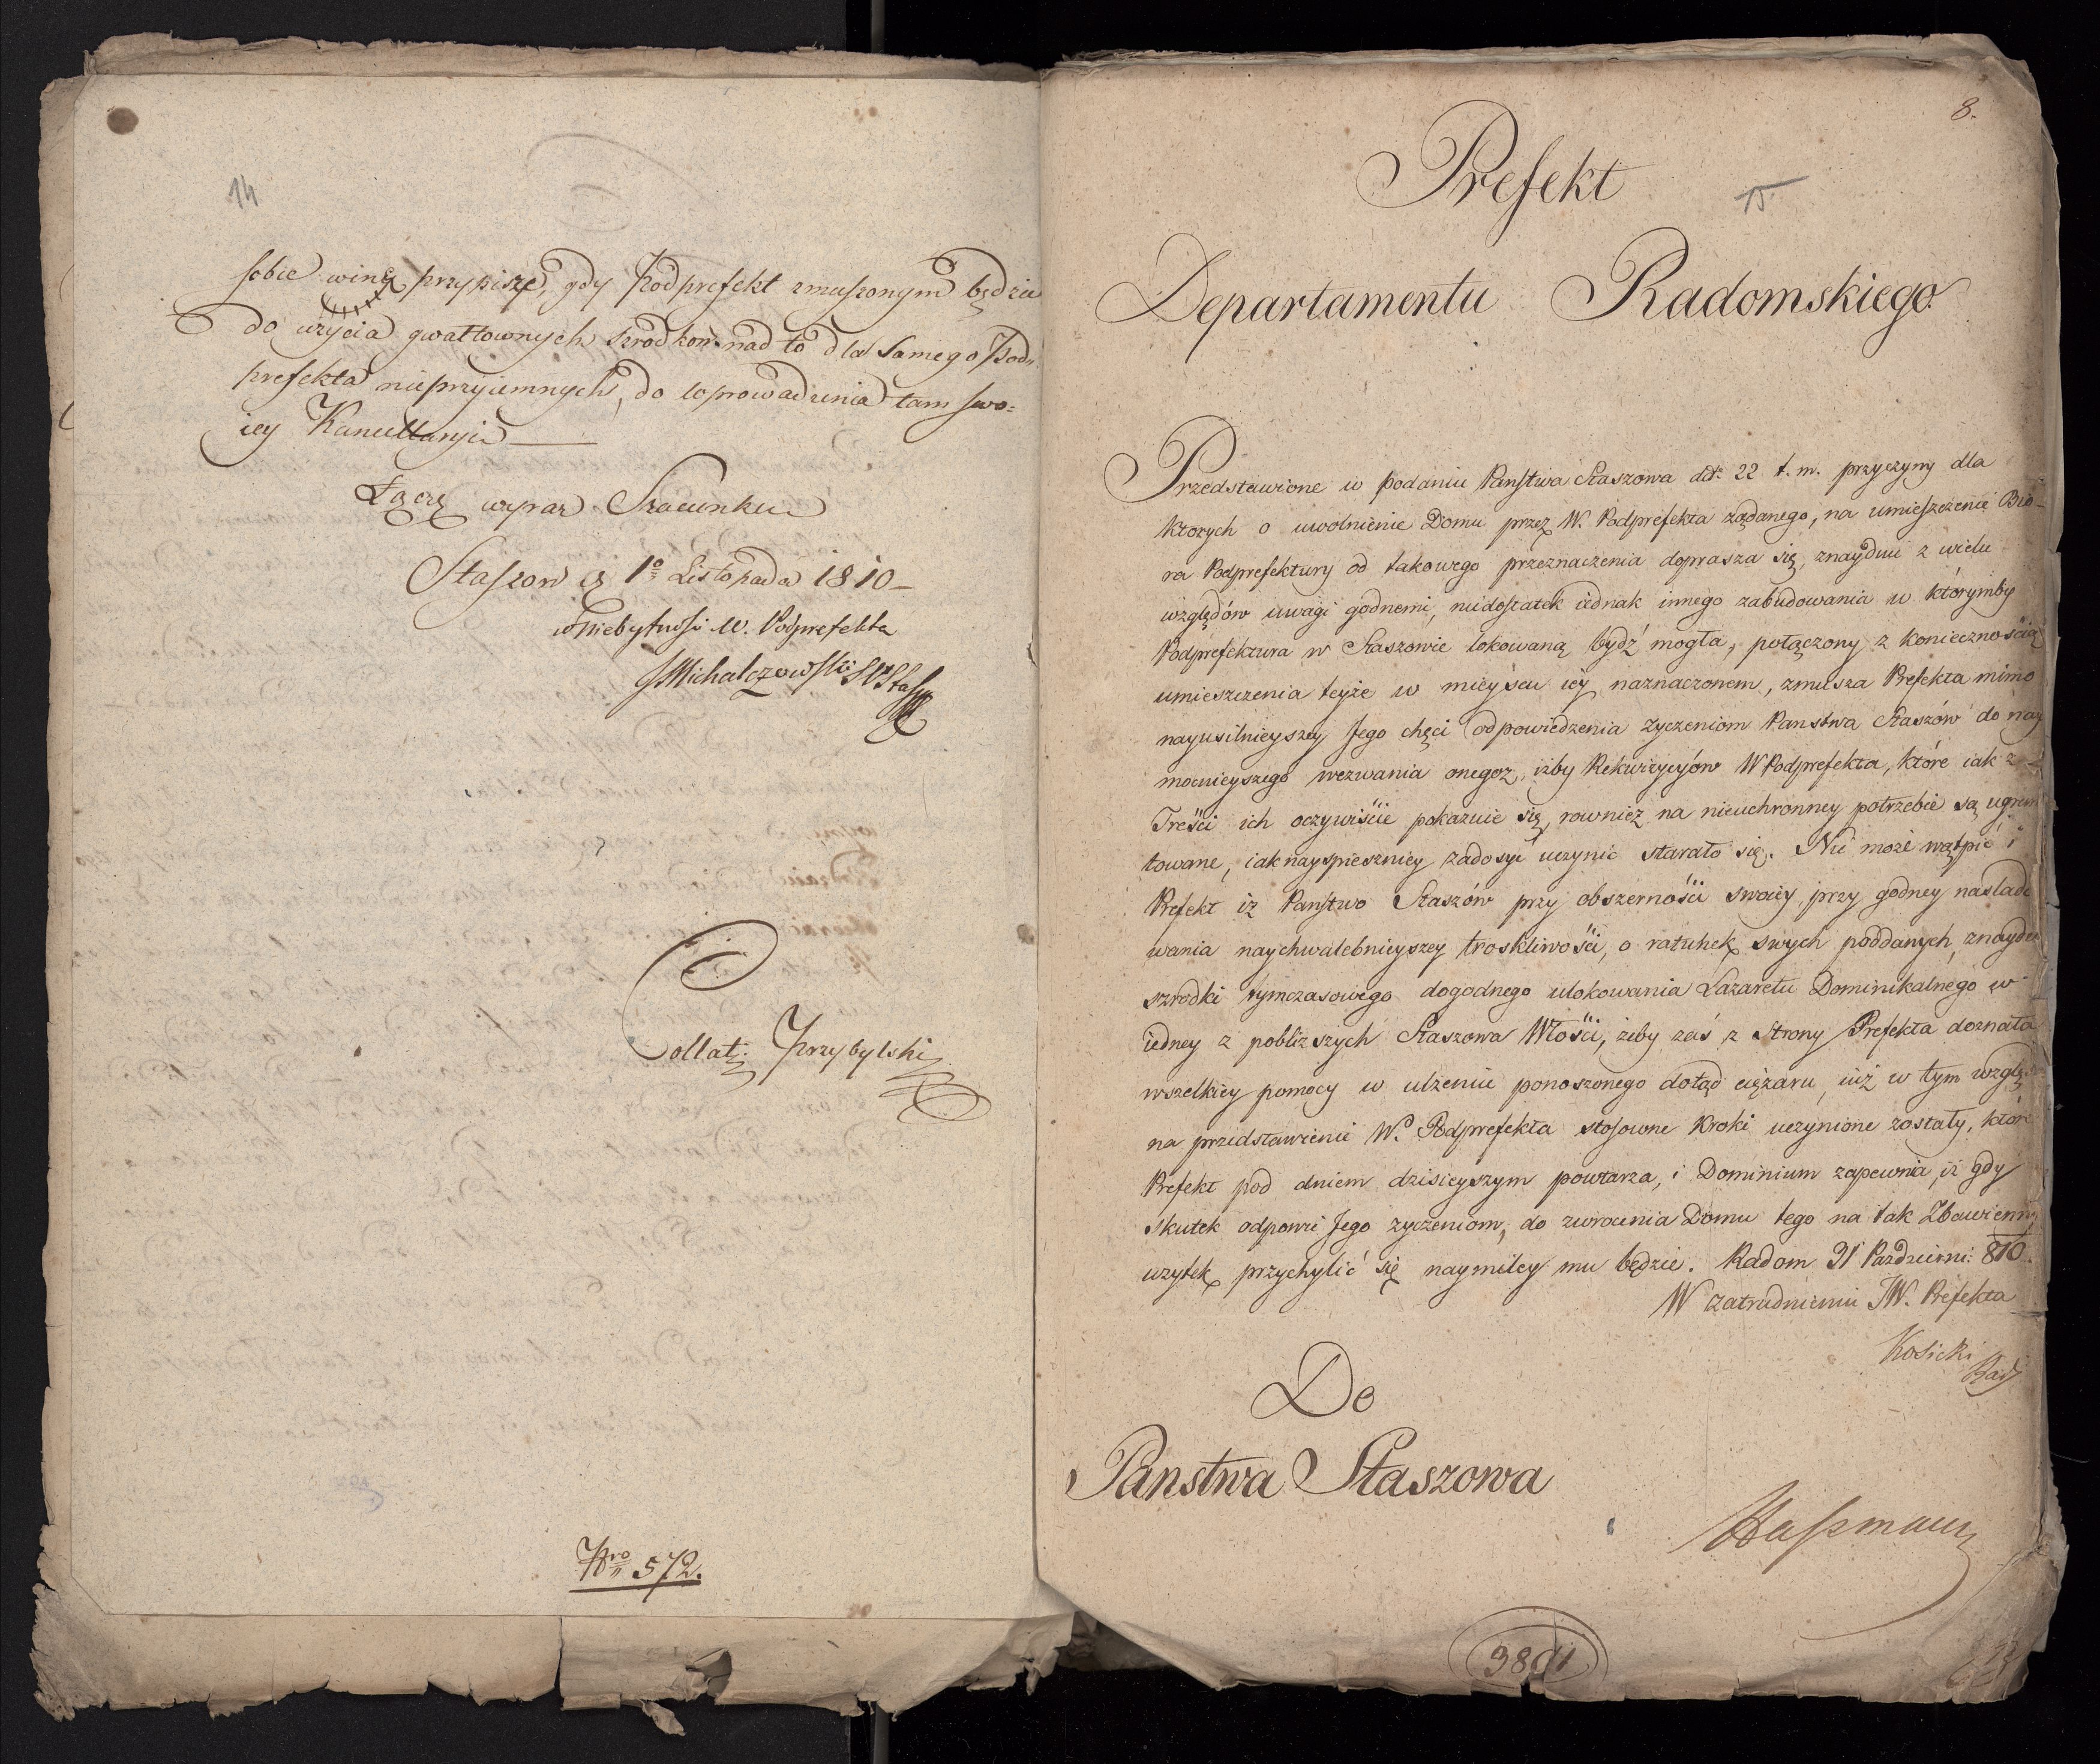 14
sobie winę przypiszę, gdy Podprefekt zmuszonym będzie
do użycia gwałtownych szrodkow nad to dla Samego Pod
prefekta nieprzyiemnych, do wprowadzenia tam swo=
iey Kancellaryi
Łączę wyraz Szacunku
Staszow d 1º Listopada 1810 –
w Niebytności W. Podprefekta
Michalczowski
Collat: Przybylski
Nro 572.
8.
Prefekt
15.
Departamentu Radomskiego.
Przedstawione w podaniu Państwa Staszowa ddt: 22 t. m. przyczyny dla
ktorych o uwolnienie Domu przez W. Podprefekta żądanego, na umieszczenie Bió-
ra Podprefektury od takowego przeznaczenia doprasza się, znayduie z wielu
względów uwagi godnemi, niedostatek iednak innego zabudowania w którymby
Podprefektura w Staszowie lokowaną bydź mogła, połączony z koniecznością
umieszczenia teyże w mieyscu iey naznaczonem, zmusza Prefekta mimo
nayusilnieyszey Jego chęci odpowiedzenia życzeniom Panstwa Staszów do nay
mocnieyszego wezwania onegoż, iżby Rekwizycyów W Podprefekta, które iak z
Treści ich oczywiście pokazuie się, rownież na nieuchronney potrzebie są ugrun
towane, iak nayspieszniey zadosyć uczynic starało się. Nie może wątpić i
Prefekt iż Państwo Staszów przy obszerności swoiey, przy godney naslado
wania naychwalebnieyszey troskliwości, o ratunek swych poddanych, znaydzie
szrodki tymczasowego dogodnego ulokowania Lazaretu Dominikalnego w
iedney z pobliższych Staszowa Włości, żeby zaś z Strony Prefekta doznało
wszelkiey pomocy w ulżeniu ponoszonego dotąd ciężaru, iuż w tym wzglę
na przedstawienie W. Podprefekta stosowne Kroki uczynione zostały, któr
Prefekt pod dniem dzisieyszym powtarza, i Dominium zapewnia, iż gdy
skutek odpowie Jego życzeniom, do zwrocenia Domu tego na tak Zbawienny
użytek przychylić się naymiley mu będzie. Radom 31 Październi: 810.
W zatrudnieniu JW. Prefekta
Kosicki
Do
Panstwa Staszowa
Hassmann